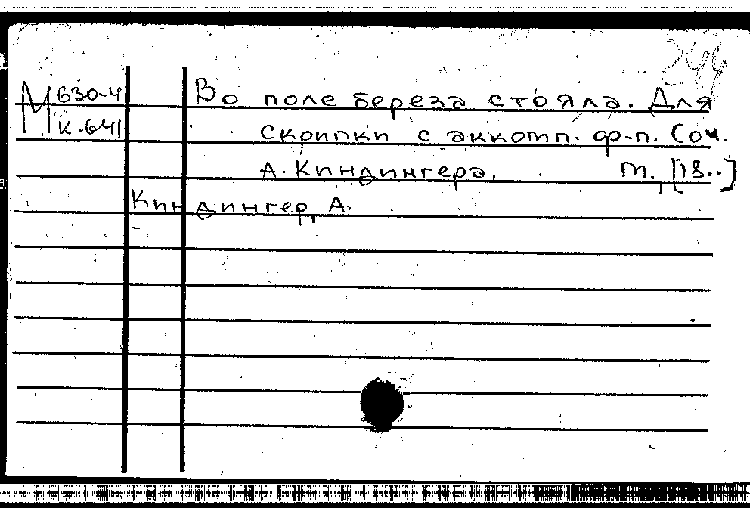 М 630-4 Во поле береза стояла. Для
К-641 скрипки с аккомп. ф-п. Соч.
А. Киндингера. М., [18..]
Киндингер, А.